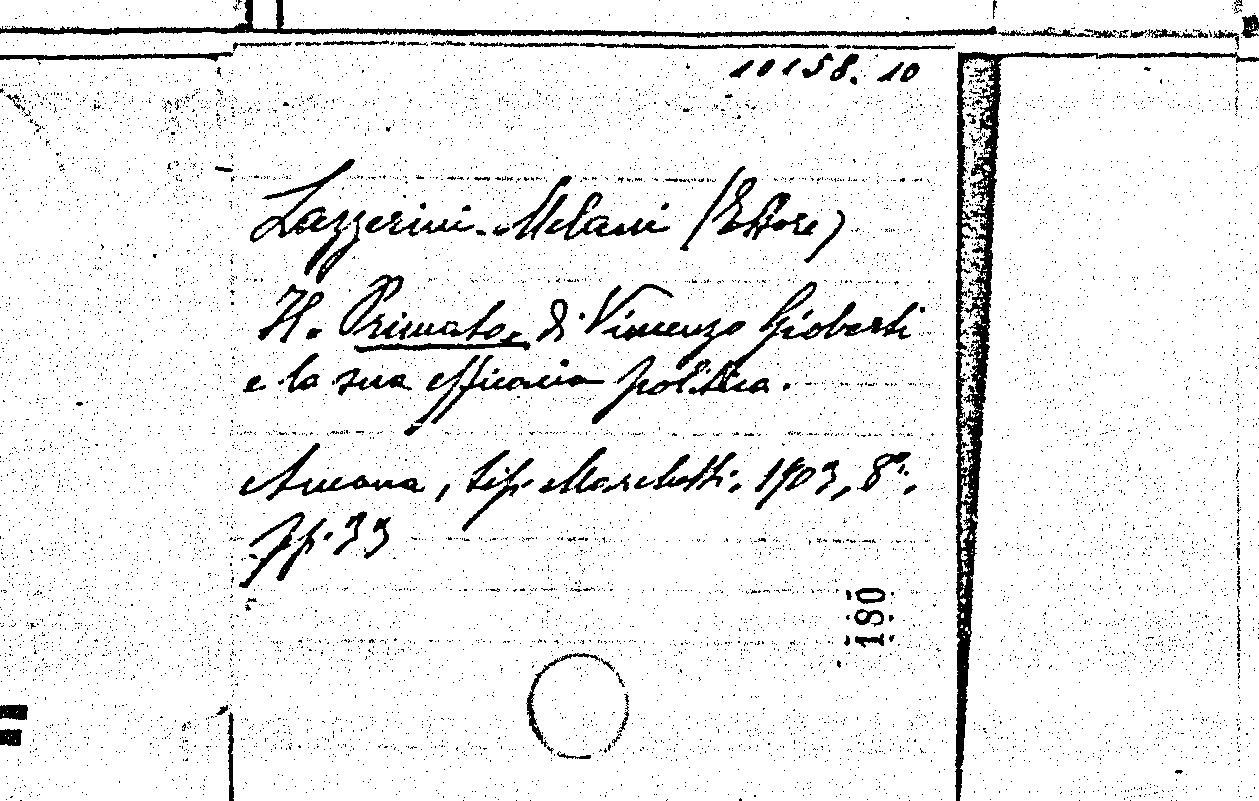 10158. 10
Lazzerini-Melani (Ettore)
Il Primato di Vincenzo Gioberti
e la sua efficacia politica.
Ancona, tip. Marchetti. 1903, 8º.
pp. 33
180